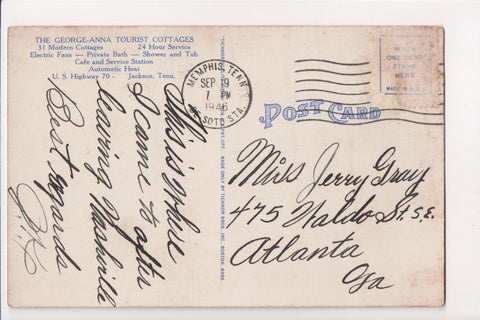 THE GEORGE-ANNA TOURIST COTTAGES
31 Modern Cottages 24 Hour Service
Electric Fans — Private Bath — Shower and Tub
Cafe and Service Station
Automatic Heat
U. S. Highway 70 - Jackson, Tenn.
This is where
I came to after
leaving Nashville
Best regards
MEMPHIS, TENN
SEP 19
7 PM
1946
DE SOTO STA.
POST CARD
ONE CENT
STAMP
HERE
MADE IN U.S.A.
MADE ONLY BY TICHNOR BROS., INC., BOSTON, MASS.
Miss Jerry Gray
475 Waldo St. S.E.
Atlanta
Ga